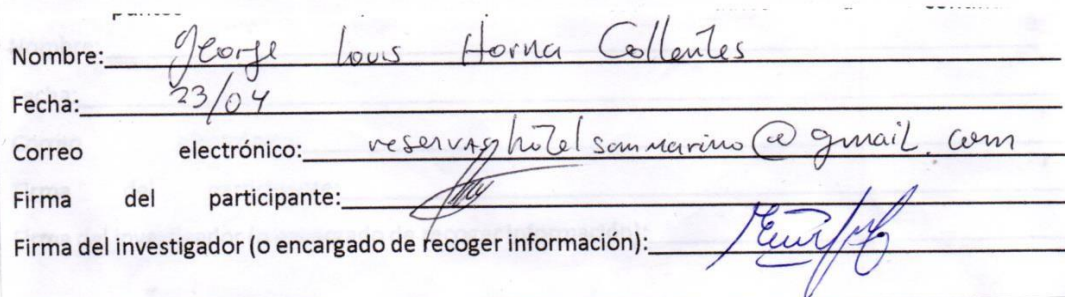 Nombre: George Louis Horna Collantes
Fecha: 23/04
Correo electrónico: reservashotelsanmarino@gmail.com
Firma del participante:
Firma del investigador (o encargado de recoger información):